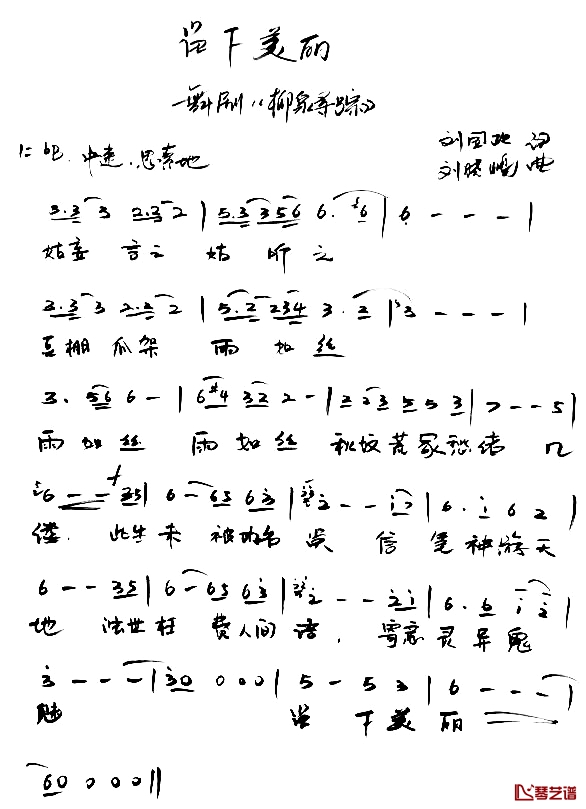 留下美丽
舞剧《柳泉寻踪》
1=bE 中速、思索地
刘国 词
刘晓 曲
3.3 3 2.3 2 | 5.3 3 5 6 6. 6 | 6 - - - |
姑妄言之 姑听之
3.3 3 2.2 2 | 5.2 2 3 4 3. 2 | 3 - - - |
豆棚瓜架 雨如丝
3. 5 6 6 - | 6 #4 3 2 2 - | 2 2 3 5 5 3 | 7 - - 5 |
雨如丝 雨如丝 秋坟荒冢愁绪几
6 - - 3 5 | 6 - 6 5 6 3 | 2 - - i 7 | 6. i 6 2 |
缕. 此生未被功名误 信笔神游天
6 - - 3 5 | 6 - 6 5 6 3 | 2 - - 2 i | 6. 6 i 2 |
地 浊世枉费人间语, 寄意灵异鬼
3 - - - | 3 0 0 0 0 | 5 - 5 3 | 6 - - - |
魅 留下美丽
6 0 0 0 0 ||
琴艺谱